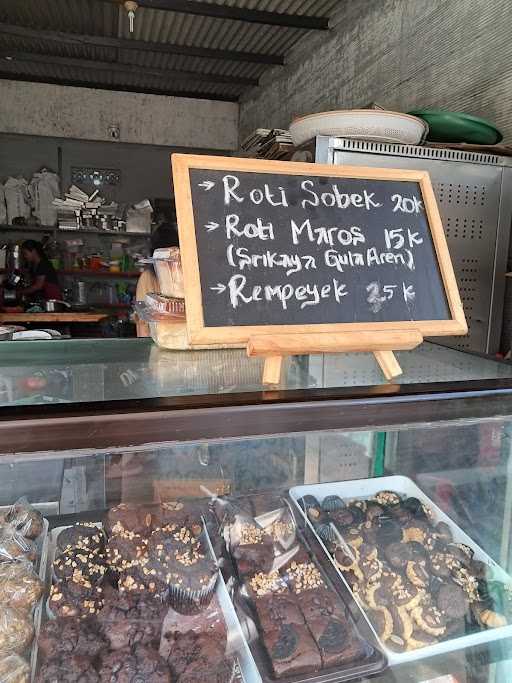 → Roti Sobek 20k
→ Roti Maros 15k
(Srikaya Gula Aren)
→ Rempeyek 25k